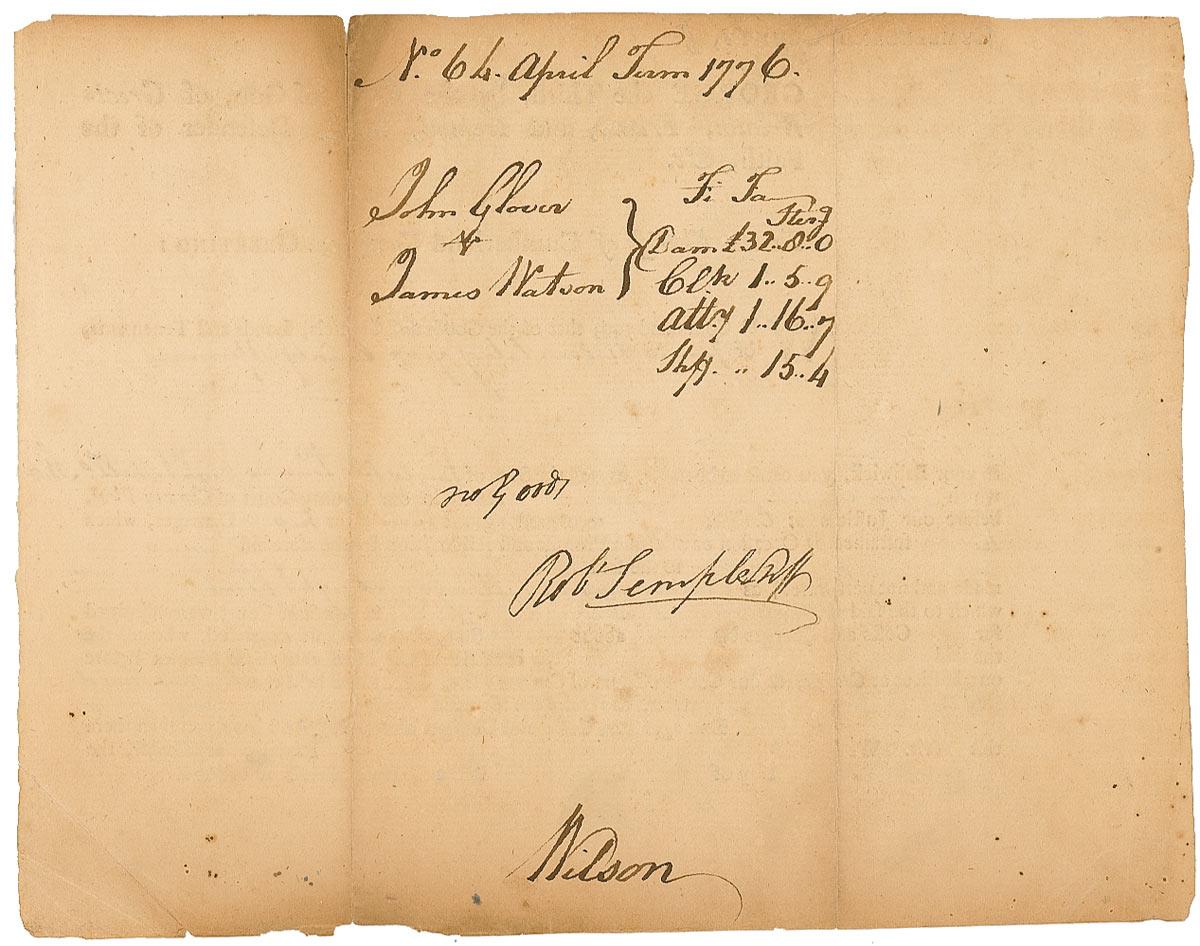 No. 64. April Term 1776.
John Glover
v
James Watson
Fi Fa
Sterg
Dam £32..8..0
Clk 1..5..9
Atty 1..16..7
Shff. " 15..4
no Goods
Robt Semple DSff
Wilson